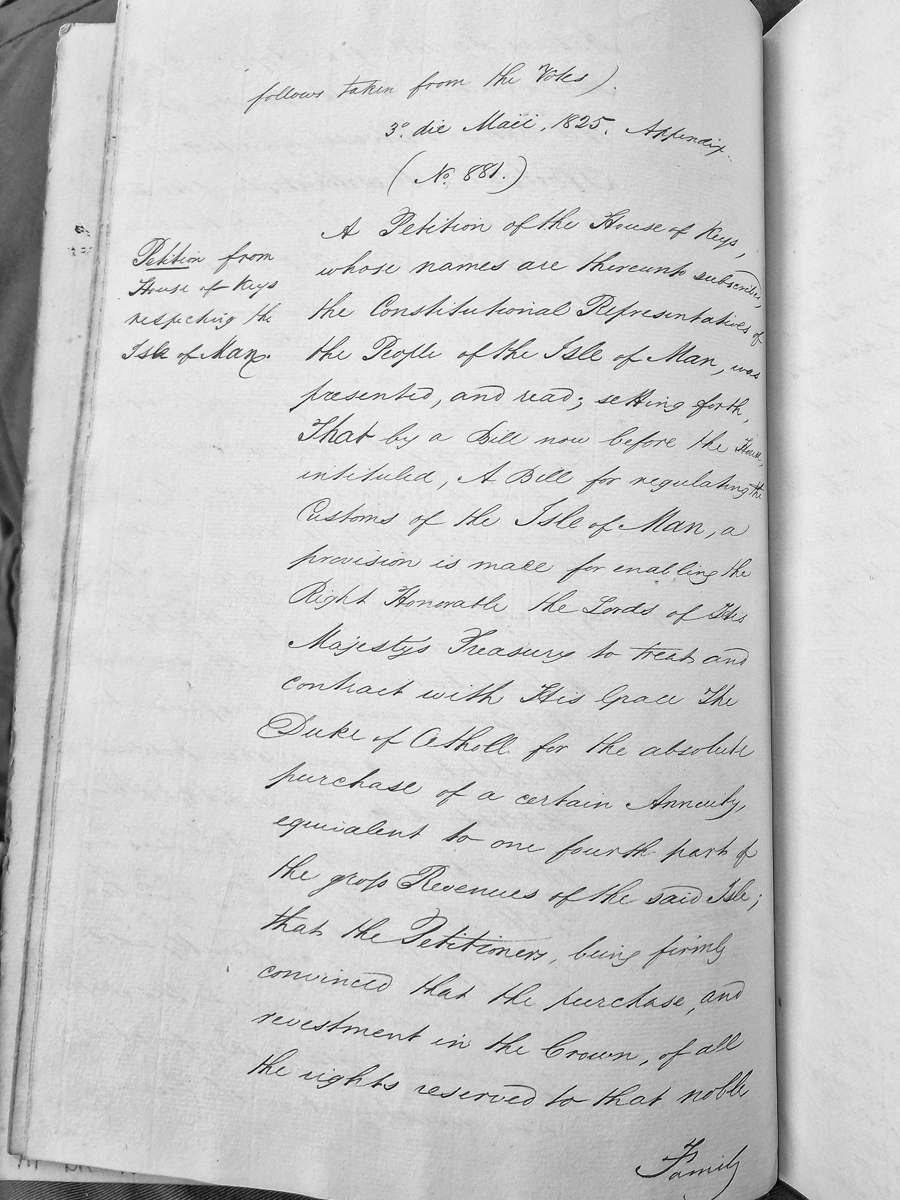 follows taken from the Votes).
3.º die Maii, 1825. Appendix.
(No. 881.)
Petition from
House of Keys
respecting the
Isle of Man.
A Petition of the House of Keys,
whose names are thereunto subscribed,
the Constitutional Representatives of
the People of the Isle of Man, was
presented, and read; setting forth,
That by a Bill now before the House,
intituled, A Bill for regulating the
Customs of the Isle of Man, a
provision is made for enabling the
Right Honorable the Lords of His
Majestys Treasury to treat and
contract with His Grace The
Duke of Atholl for the absolute
purchase of a certain Annuity,
equivalent to one fourth part of
the gross Revenues of the said Isle;
that the Petitioners, being firmly
convinced that the purchase, and
revestment in the Crown, of all
the rights reserved to that noble
Family